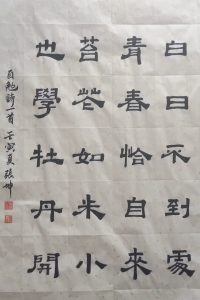 白日不到處
青春恰自來
苔花如米小
也學牡丹開
自勉詩一首 壬寅夏 張坤